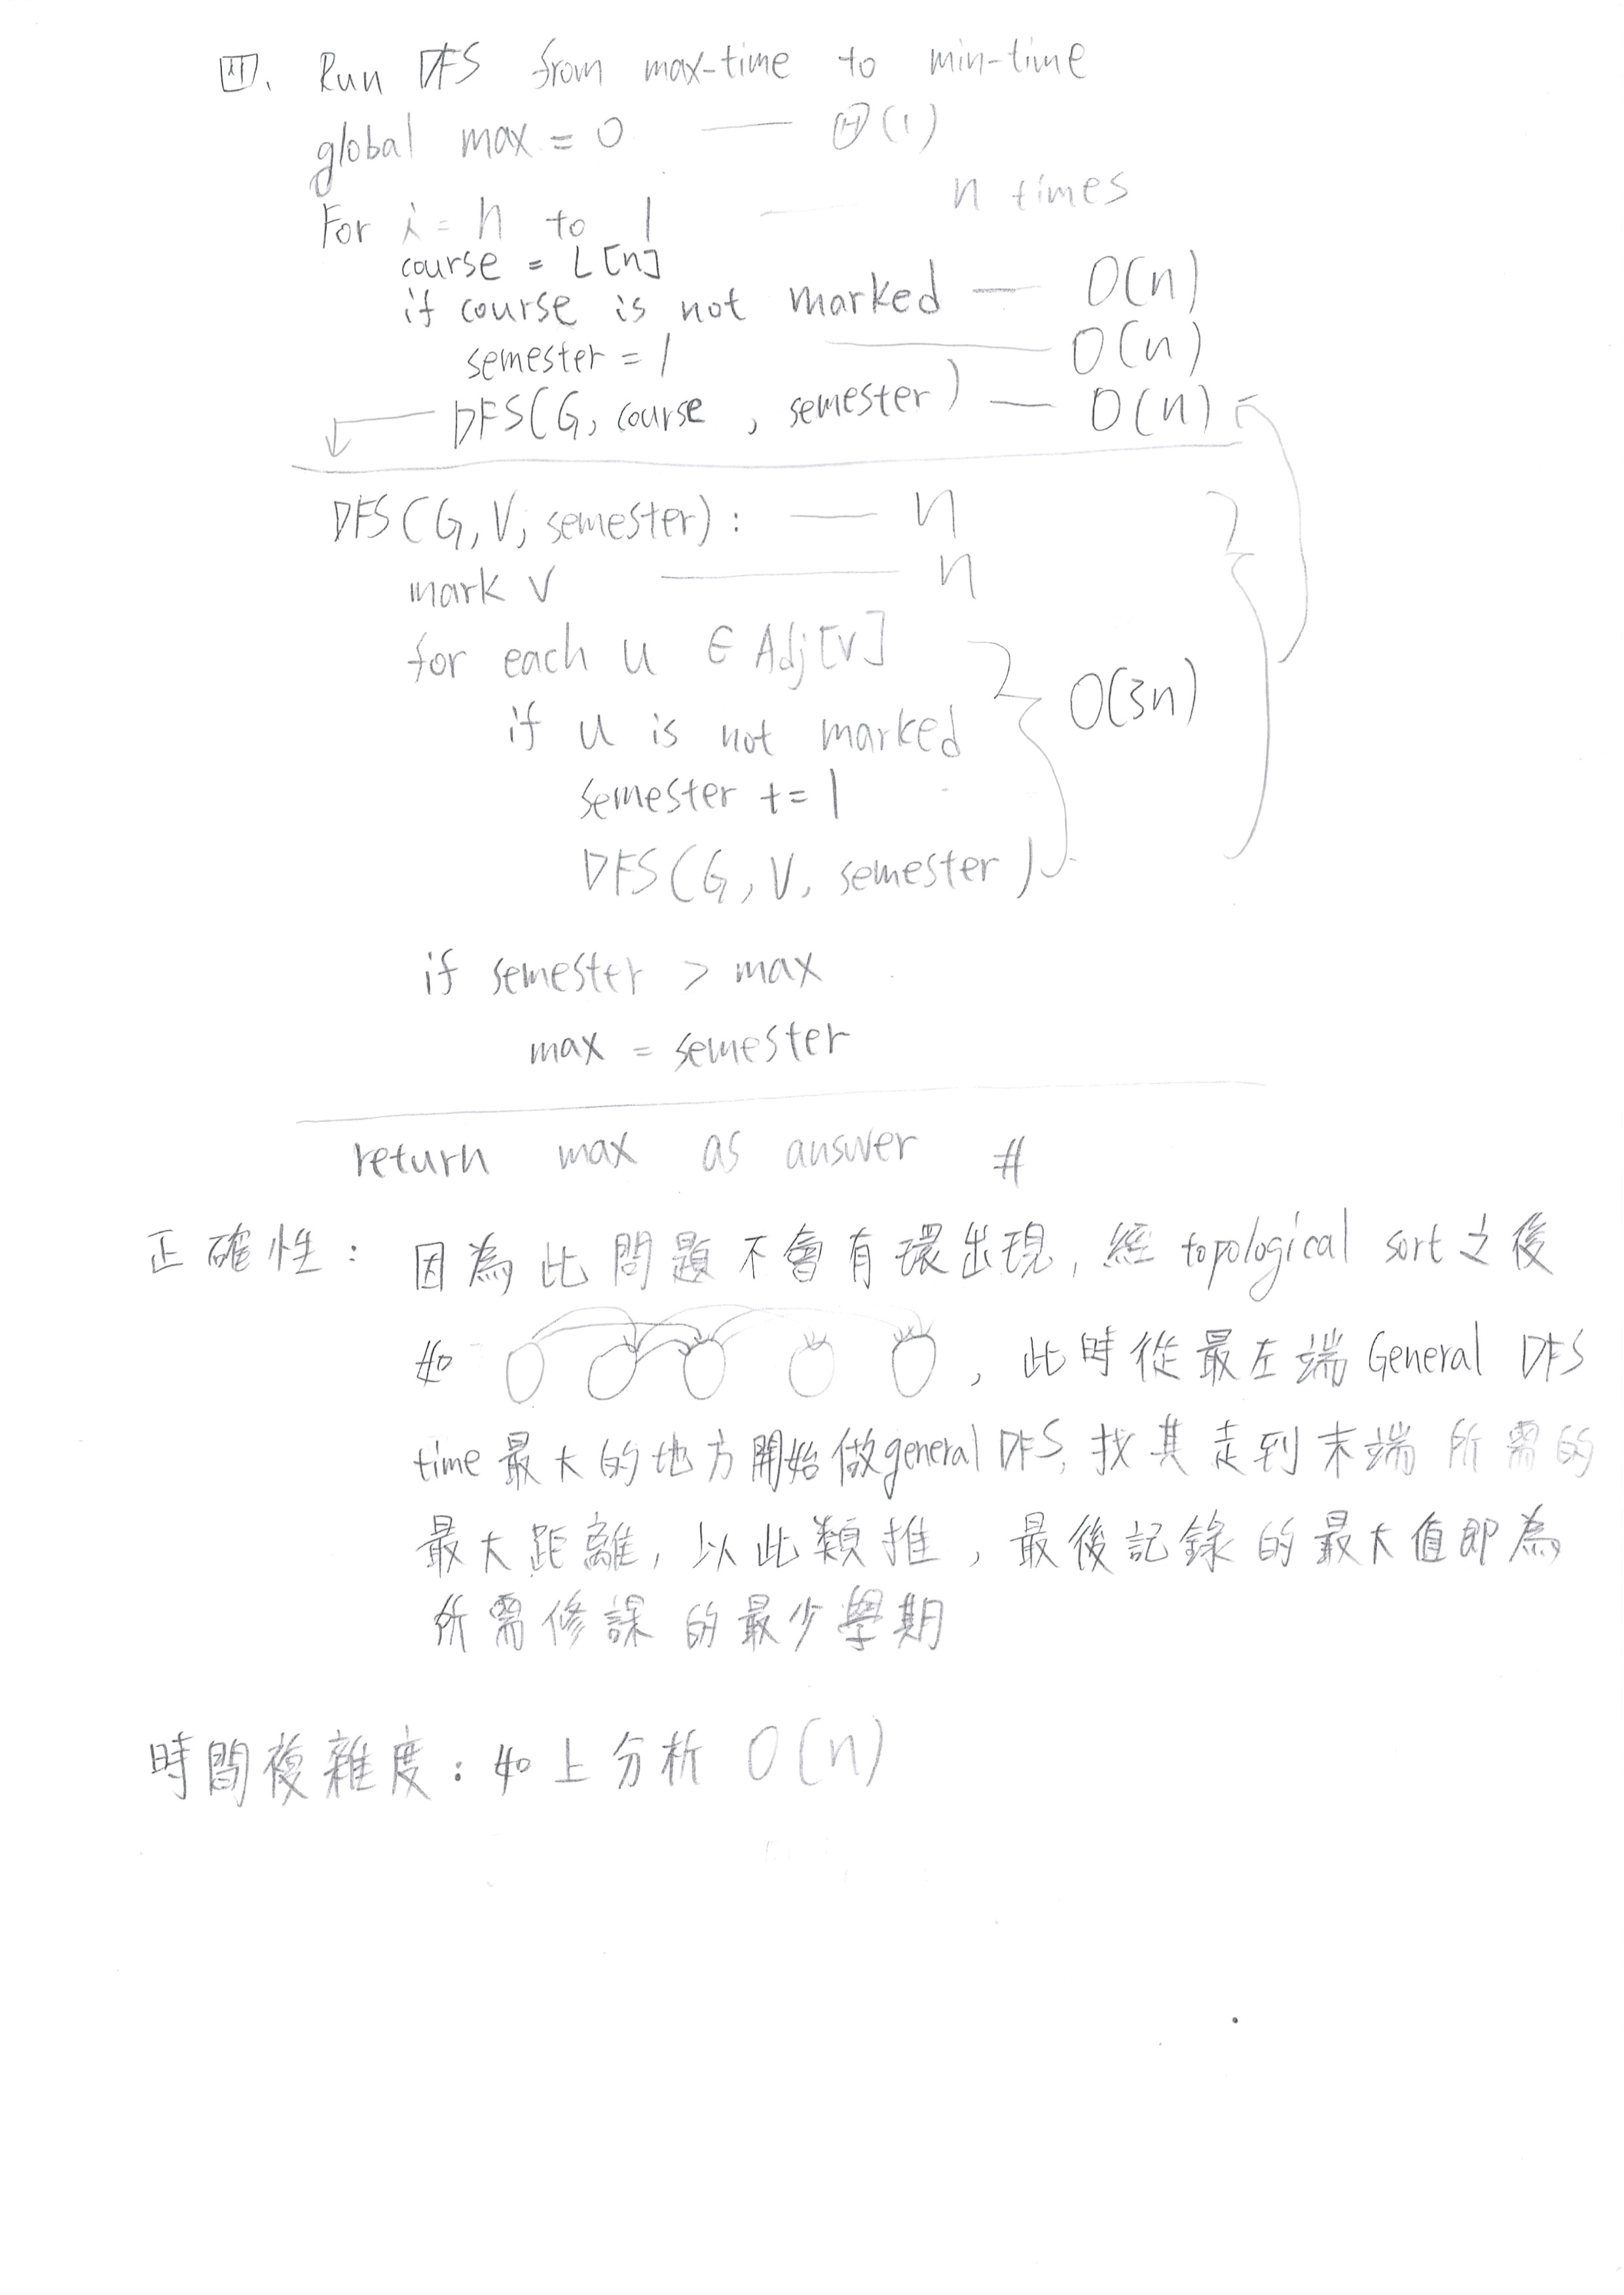 四. Run DFS from max-time to min-time
global max = 0 — Θ(1)
For i = n to 1 — n times
course = L[n]
if course is not marked — O(n)
semester = 1 — O(n)
DFS(G, course, semester) — O(n)
DFS(G, V, semester): — n
mark v — n
for each u ∈ Adj[v]
if u is not marked
O(3n)
semester += 1
DFS(G, V, semester)
if semester > max
max = semester
return max as answer #
正確性: 因為此問題不會有環出現, 經 topological sort 之後
如 , 此時從最左端 General DFS
time 最大的地方開始做 general DFS, 找其走到末端所需的
最大距離, 以此類推, 最後記錄的最大值即為
所需修課的最少學期
時間複雜度: 如上分析 O(n)